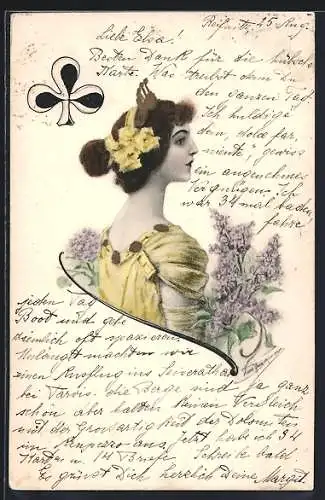 Reifnitz, 25 Aug.
Liebe Elsa!
Besten Dank für die hübsche
Karte. Was treibst denn Du
den ganzen Tag.
Ich huldige
dem „dolce far
niente“, gewiss
ein angenehmes
Vergnügen. Ich
war 34 mal baden
fahre
jeden Tag
Boot und gehe
ziemlich oft spazieren.
Unlängst machten wir
einen Ausflug ins
bei Tarvis. Die Berge sind ja ganz
schön aber halten keinen Vergleich
mit der Grossartigkeit der Dolomiten
im aus. Jetzt habe ich 34
Karten u. 14 Briefe. Schreibe bald!
Es grüsst Dich herzlich Deine Margit.